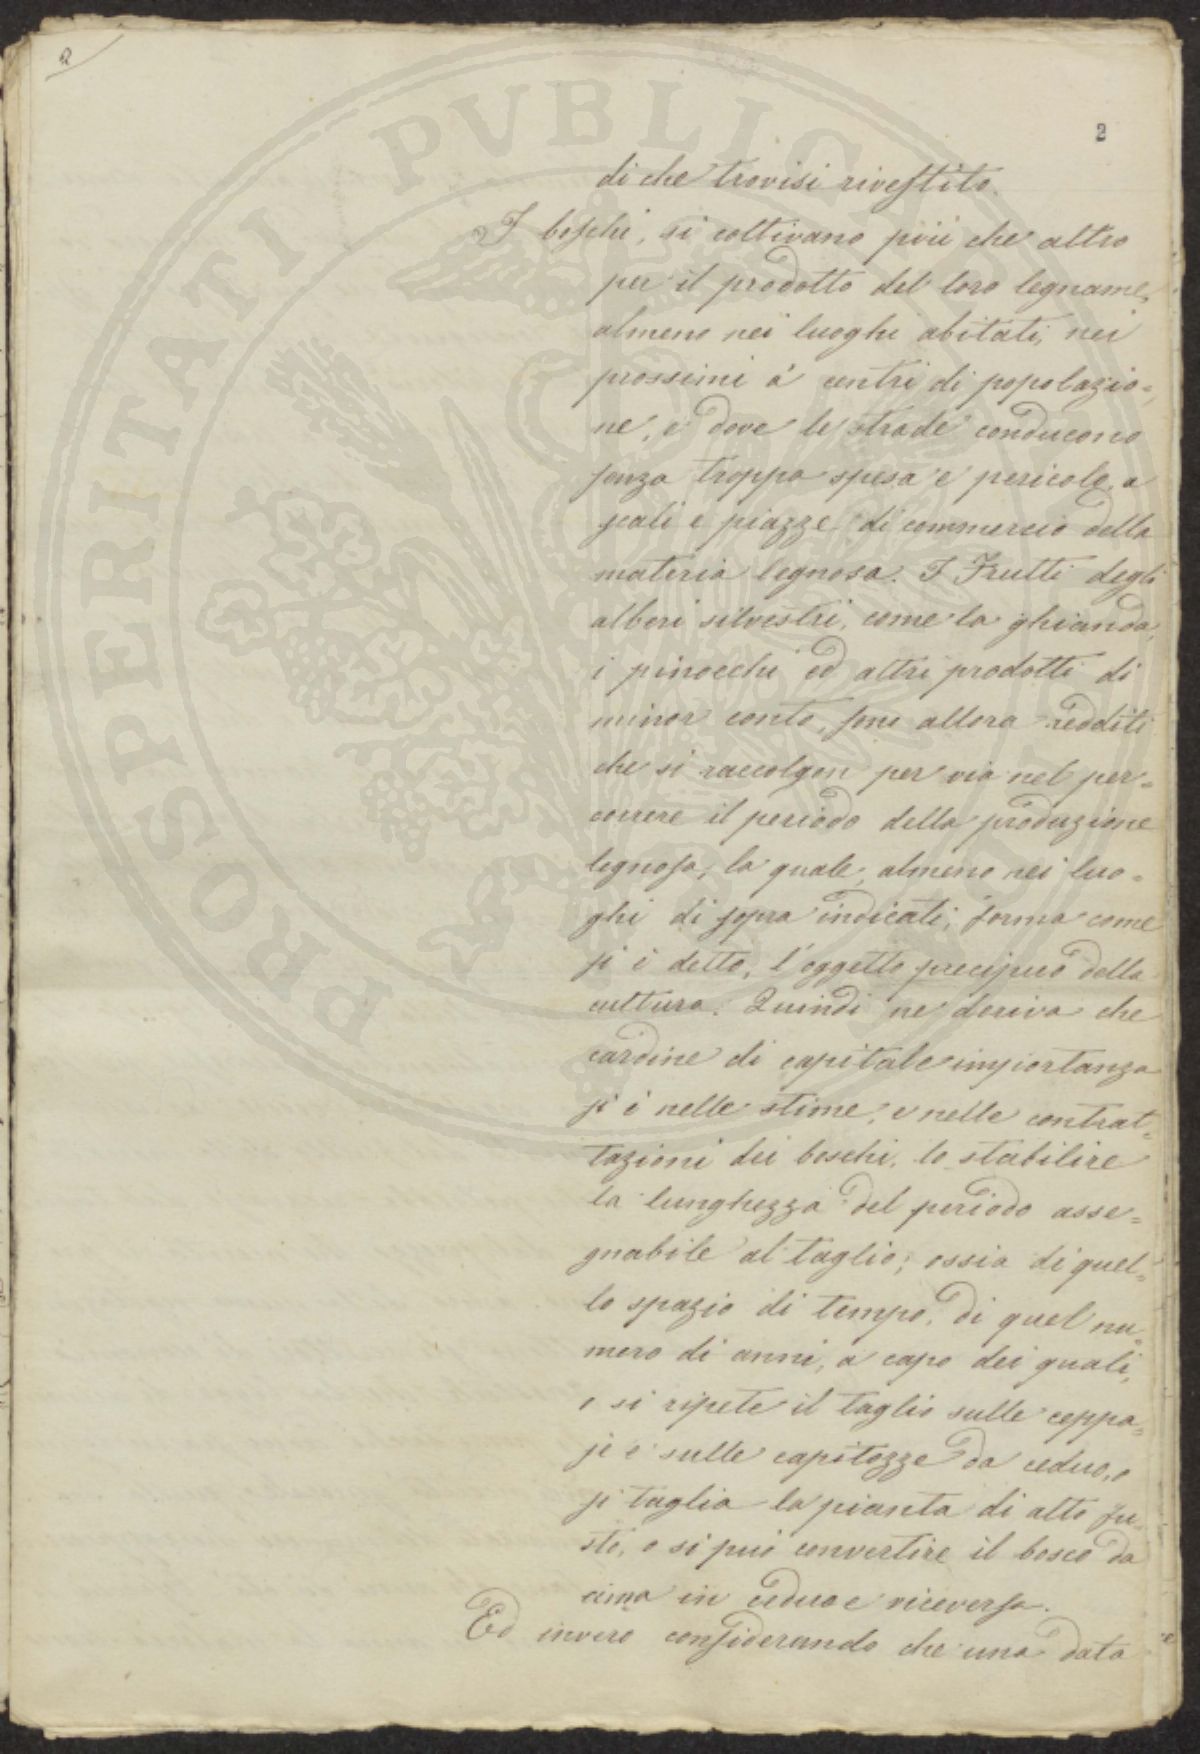 2
2
di che trovisi rivestito.
I boschi, si coltivano più che altro
per il prodotto del loro legname,
almeno nei luoghi abitati, nei
prossimi a' centri di popolazio=
ne, e dove le strade conducono
senza troppa spesa e pericolo, a
scali e piazze di commercio della
materia legnosa. I Frutti degli
alberi silvestri, come la ghianda,
i pinocchi ed altri prodotti di
minor conto, sono allora redditi
che si raccolgon per via nel per=
correre il periodo della produzione
legnosa, la quale, almeno nei luo=
ghi di sopra indicati, forma come
si è detto, l'oggetto precipuo della
cultura. Quindi ne deriva che
cardine di capitale importanza
si è nelle stime, e nelle contrat=
tazioni dei boschi, lo stabilire
la lunghezza del periodo asse=
gnabile al taglio; ossia di quel=
lo spazio di tempo, di quel nu=
mero di anni, a capo dei quali,
o si ripete il taglio sulle ceppa=
je e sulle capitozze da ceduo, o
si taglia la pianta di alto fu=
sto, o si può convertire il bosco da
cima in ceduo e viceversa.
Ed invero considerando che una data
PROSPERITATI PVBLICAE